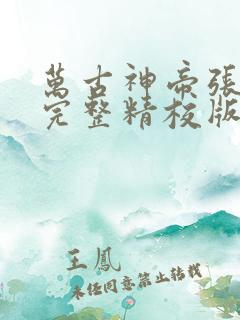 萬古神帝張
完整精校版
王鳳
未经同意禁止转载